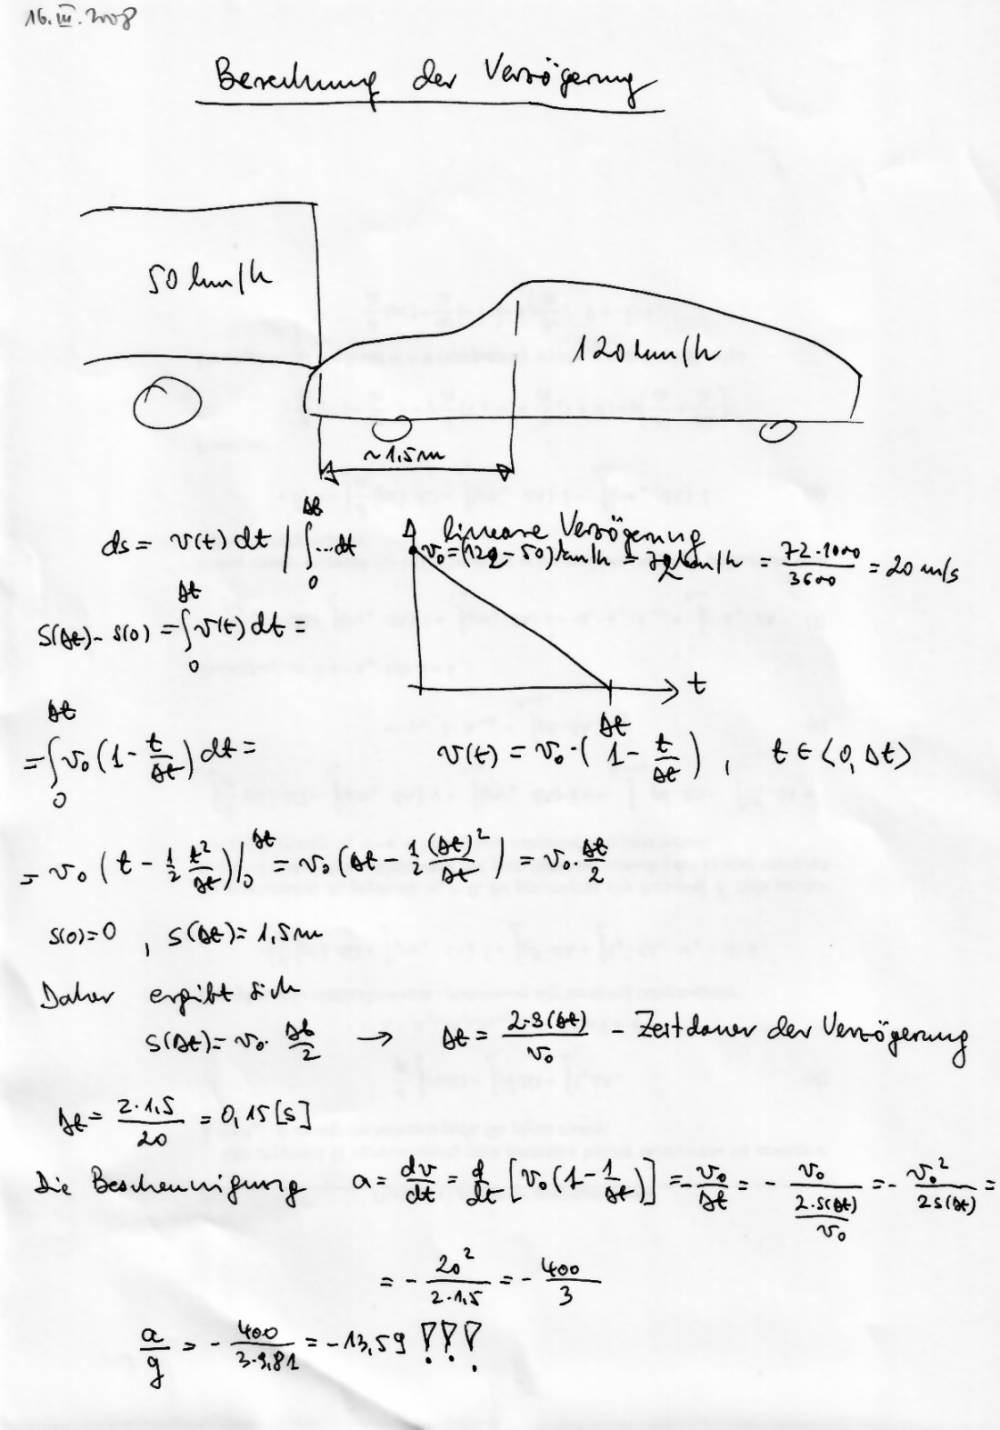 16.III.2008
Berechnung der Verzögerung
50 km/h
120 km/h
~1,5m
ds = v(t) dt | ∫₀^Δt ... dt
lineare Verzögerung
v₀ = (122 - 50) km/h = 72 km/h = 72·1000/3600 = 20 m/s
s(Δt) - s(0) = ∫₀^Δt v(t) dt =
t
Δt
= ∫₀^Δt v₀ (1 - t/Δt) dt =
v(t) = v₀ · (1 - t/Δt), t ∈ ⟨0, Δt⟩
= v₀ (t - 1/2 t²/Δt) |₀^Δt = v₀ (Δt - 1/2 (Δt)²/Δt) = v₀ · Δt/2
s(0) = 0 , s(Δt) = 1,5m
Daher ergibt sich
s(Δt) = v₀ · Δt/2 → Δt = 2·s(Δt)/v₀ - Zeitdauer der Verzögerung
Δt = 2·1,5/20 = 0,15 [s]
Die Beschleunigung a = dv/dt = d/dt [v₀ (1 - 1/Δt)] = - v₀/Δt = - v₀/(2·s(Δt)/v₀) = - v₀²/2s(Δt) =
= - 20²/2·1,5 = - 400/3
a/g = - 400/3·9,81 = -13,59 !!!